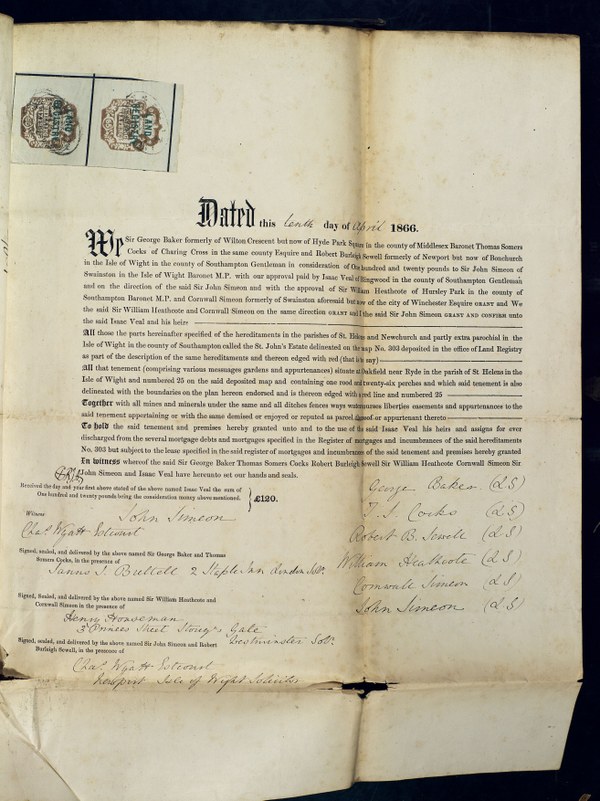 LAND REGISTRY
LAND REGISTRY
Dated this tenth day of April 1866.
We Sir George Baker formerly of Wilton Crescent but now of Hyde Park Square in the county of Middlesex Baronet Thomas Somers
Cocks of Charing Cross in the same county Esquire and Robert Burleigh Sewell formerly of Newport but now of Bonchurch
in the Isle of Wight in the county of Southampton Gentleman in consideration of One hundred and twenty pounds to Sir John Simeon of
Swainston in the Isle of Wight Baronet M.P. with our approval paid by Isaac Veal of Ringwood in the county of Southampton Gentleman
and on the direction of the said Sir John Simeon and with the approval of Sir William Heathcote of Hursley Park in the county of
Southampton Baronet M.P. and Cornwall Simeon formerly of Swainston aforesaid but now of the city of Winchester Esquire GRANT and We
the said Sir William Heathcote and Cornwall Simeon on the same direction GRANT and I the said Sir John Simeon GRANT AND CONFIRM unto
the said Isaac Veal and his heirs
All those the parts hereinafter specified of the hereditaments in the parishes of St. Helens and Newchurch and partly extra parochial in the
Isle of Wight in the county of Southampton called the St. John's Estate delineated on the map No. 303 deposited in the office of Land Registry
as part of the description of the same hereditaments and thereon edged with red (that is to say)
All that tenement (comprising various messuages gardens and appurtenances) situate at Oakfield near Ryde in the parish of St Helens in the
Isle of Wight and numbered 25 on the said deposited map and containing one rood and twenty-six perches and which said tenement is also
delineated with the boundaries on the plan hereon endorsed and is thereon edged with a red line and numbered 25
Together with all mines and minerals under the same and all ditches fences ways watercourses liberties easements and appurtenances to the
said tenement appertaining or with the same demised or enjoyed or reputed as parcel thereof or appurtenant thereto
To hold the said tenement and premises hereby granted unto and to the use of the said Isaac Veal his heirs and assigns for ever
discharged from the several mortgage debts and mortgages specified in the Register of mortgages and incumbrances of the said hereditaments
No. 303 but subject to the lease specified in the said register of mortgages and incumbrances of the said tenement and premises hereby granted
In witness whereof the said Sir George Baker Thomas Somers Cocks Robert Burleigh Sewell Sir William Heathcote Cornwall Simeon Sir
John Simeon and Isaac Veal have hereunto set our hands and seals.
Received the day and year first above stated of the above named Isaac Veal the sum of
One hundred and twenty pounds being the consideration money above mentioned. } £120.
John Simeon
Witness
Chas. Wyatt Estcourt
Signed, sealed, and delivered by the above named Sir George Baker and Thomas
Somers Cocks, in the presence of
2 Staple Inn London Solr.
Signed, sealed, and delivered by the above named Sir William Heathcote and
Cornwall Simeon in the presence of
Henry
3 Princes Street Storey's Gate
Westminster Solr.
Signed, sealed, and delivered by the above named Sir John Simeon and Robert
Burleigh Sewell, in the presence of
Chas. Wyatt Estcourt
Newport Isle of Wight Solicitor
George Baker (LS)
T. S. Cocks (LS)
Robert B. Sewell (LS)
William Heathcote (LS)
Cornwall Simeon (LS)
John Simeon (LS)